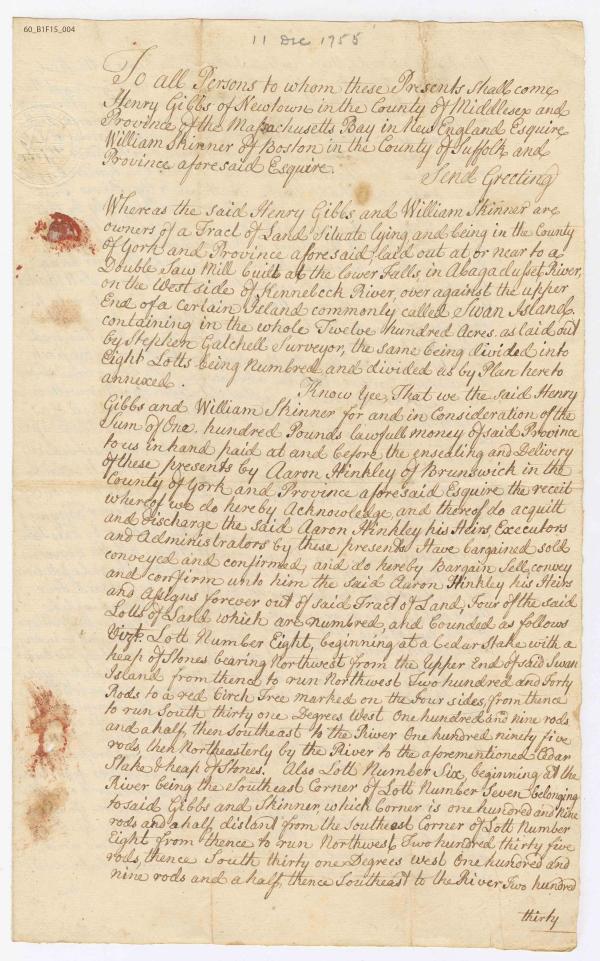 60_B1F15_004
11 Dec 1755
To all Persons to whom these Presents shall come
Henry Gibbs of Newtown in the County of Middlesex and
Province of the Massachusetts Bay in New England Esquire
William Skinner of Boston in the County of Suffolk and
Province aforesaid Esquire. Send Greeting
Whereas the said Henry Gibbs and William Skinner are
owners of a Tract of Land Situate lying and being in the County
of York and Province aforesaid laid out at or near to a
Double Saw Mill built at the lower Falls in Abagadusset River,
on the West side of Kennebeck River, over against the upper
End of a certain Island commonly called Swan Island,
containing in the whole Twelve hundred Acres. as laid out
by Stephen Gatchell Surveyor, the same being divided into
Eight Lotts being Numbred and divided as by Plan hereto
annexed. Know Yee, That we the said Henry
Gibbs and William Skinner for and in Consideration of the
Sum of One hundred Pounds lawfull money of said Province
to us in hand paid at and before the ensealing and Delivery
of these presents by Aaron Hinkley of Brunswick in the
County of York and Province aforesaid Esquire the receit
whereof we do hereby Acknowledge and thereof do acquitt
and discharge the said Aaron Hinkley his Heirs, Executors
and Administrators by these presents Have bargained sold
conveyed and confirmed, and do hereby Bargain Sell, convey
and confirm unto him the said Aaron Hinkley his Heirs
and Assigns forever out of said Tract of Land, Four of the said
Lotts of Land which are numbred, and bounded as follows
Vizt. Lott Number Eight, beginning at a Cedar Stake with a
heap of Stones bearing Northwest from the Upper End of said Swan
Island from thence to run Northwest Two hundred and Forty
Rods to a red Birch Tree marked on the four sides, from thence
to run South thirty one Degrees West One hundred and nine rods
and a half, then Southeast to the River One hundred ninety five
rods, then Northeasterly by the River to the aforementioned Cedar
Stake & heap of Stones. Also Lott Number Six, beginning at the
River being the Southeast Corner of Lott Number Seven belonging
to said Gibbs and Skinner, which Corner is one hundred and nine
rods and a half distant from the Southeast Corner of Lott Number
Eight from thence to run Northwest Two hundred thirty five
rods, thence South thirty one Degrees West One hundred and
nine rods and a half, thence Southeast to the River Two hundred
thirty